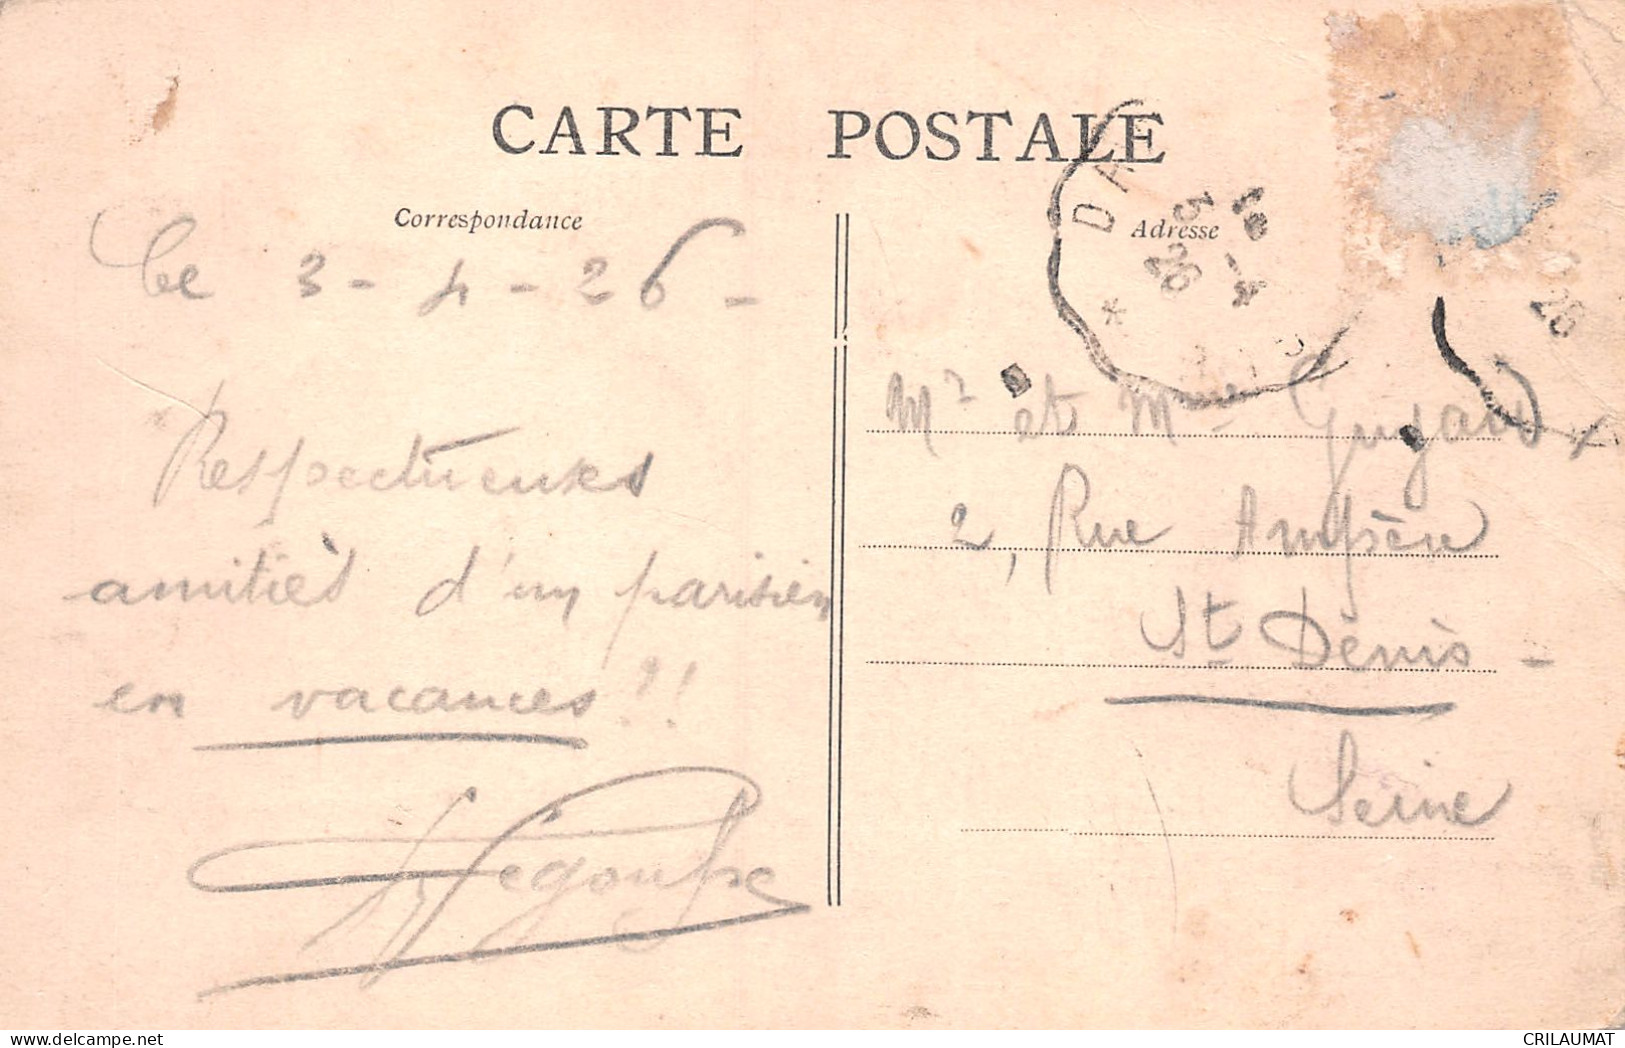 CARTE POSTALE
Correspondance
Adresse
Le 3-4-26-
Respectueuses
amitiés d'un parisien
en vacances !!
Mr et Mme
2, Rue Ampère
St Denis -
Seine
DA
*
26
26
CRILAUMAT